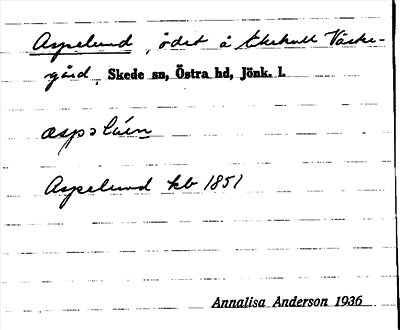 Aspelund, ödet å Ekekull Väster-
gård, Skede sn, Östra hd, Jönk. l.
aspəlúen
Aspelund kb 1851
Annalisa Anderson 1936